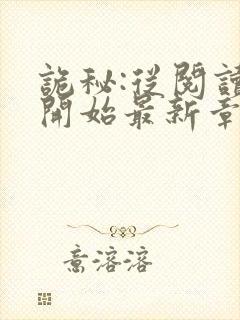 詭秘:從閱讀
開始最新章
意溶溶